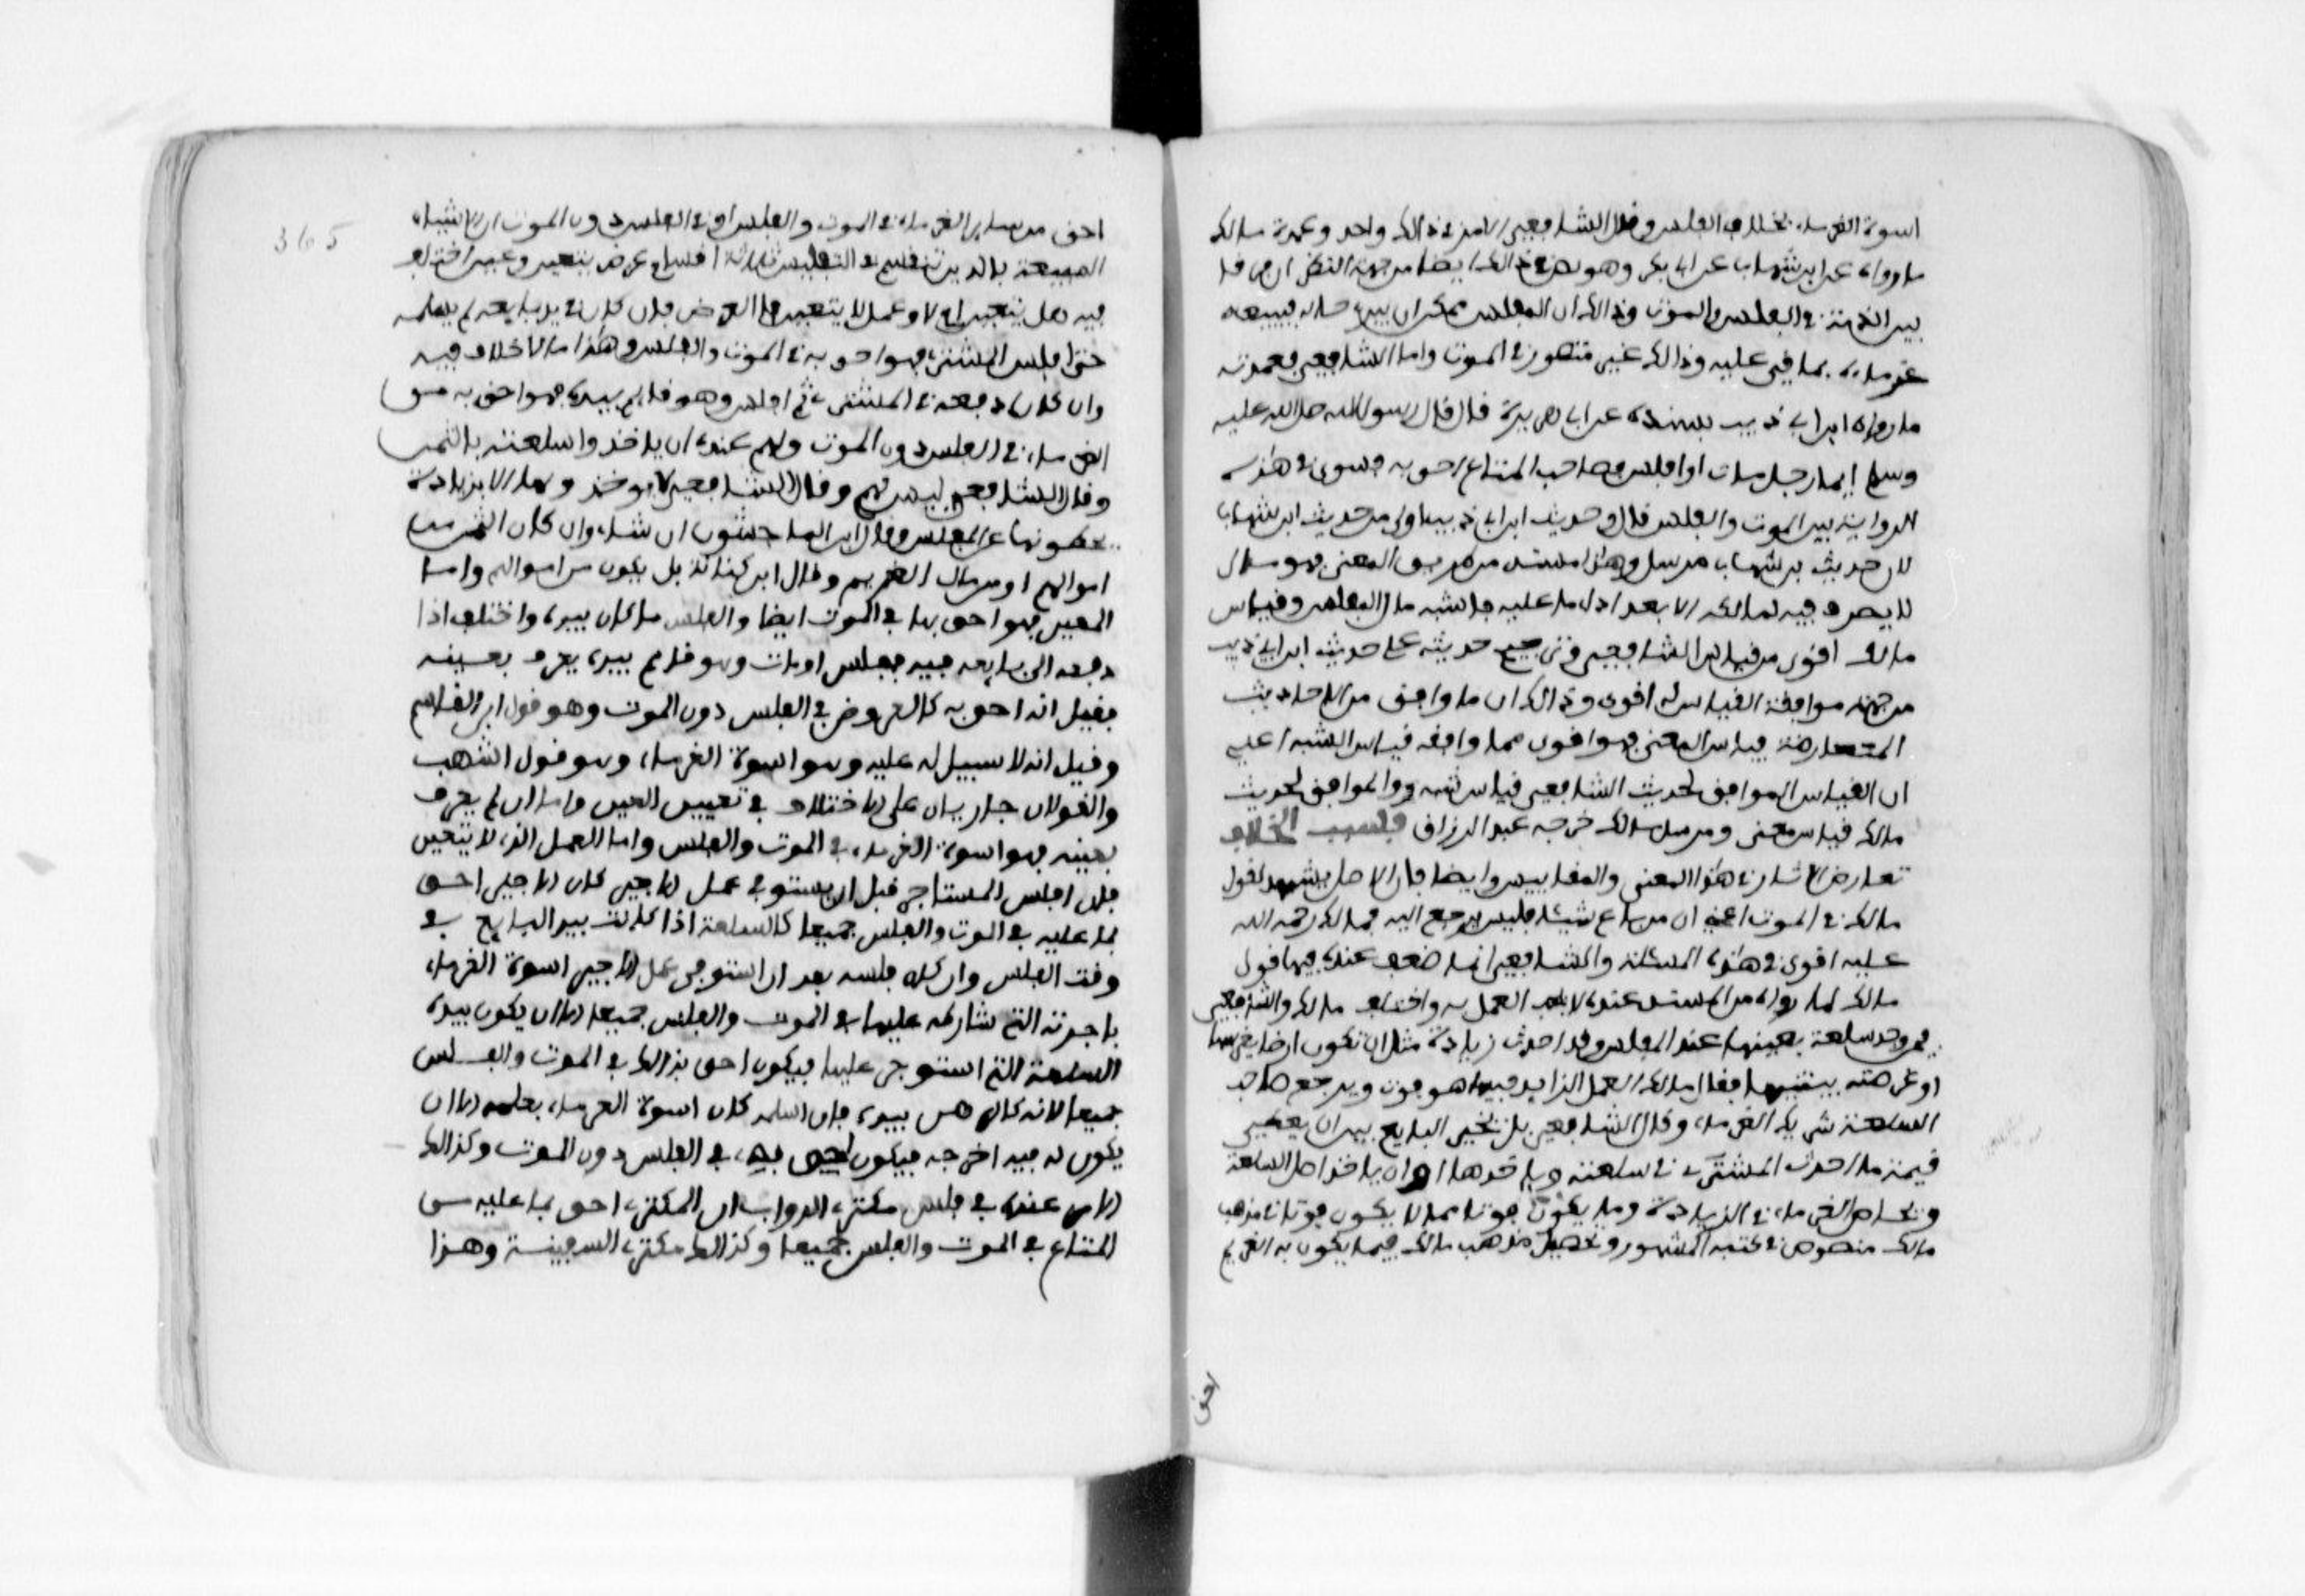 اسوة الغرماء بخلاف الفلس وقال الشافعي الامر في ذالك واحد وعمدة مالك
ما رواه عن ابن شهاب عن ابي بكر وهو نص في ذالك ايضا من جهة النظر ان فرقا
بين الذمة في الفلس والموت وذالك ان المفلس يمكن ان يثرى حاله فيتبعه
غرماؤه بما بقي عليه وذالك غير متصور في الموت واما الشافعي فعمدته
ما رواه ابن ابي ذيب بسنده عن ابي هريرة قال قال رسول الله صلى الله عليه
وسلم ايما رجل مات او افلس فصاحب المتاع احق به فسوى في هذه
الرواية بين الموت والفلس قال وحديث ابن ابي ذيب اولى من حديث ابن شهاب
لان حديث بن شهاب مرسل وهذا مسند من طريق المعنى فهو مال
لا يصرف فيه لمالكه الا بعد اداء ما عليه فاشبه مال المفلس وقياس
مالك اقوى من قياس الشافعي وترجيح حديثه على حديث ابن ابي ذيب
من جهة موافقة القياس له اقوى وذالك ان ما وافق من الاحاديث
المتعارضة قياس المعنى فهو اقوى مما وافقه قياس الشبه اعني
ان القياس الموافق لحديث الشافعي قياس شبه والموافق لحديث
مالك قياس معنى ومرسل مالك خرجه عبد الرزاق فسبب الخلاف
تعارض الاثار في هذا المعنى والمقاييس وايضا فان الاصل يشهد لقول
مالك في الموت اعني ان من باع شيئا فليس يرجع اليه فمالك رحمه الله
عليه اقوى في هذه المسئلة والشافعي انما ضعف عنده فيها قول
مالك لما رواه من المسند عنده لا يجب العمل به واختلف مالك والشافعي
فيمن وجد سلعة بعينها عند المفلس وقد احدث زيادة مثل ان تكون ارضا يغرسها
او عرصة يبنيها فقال مالك العمل الزايد فيها هو فوت ويرجع صاحب
السلعة شريك الغرماء وقال الشافعي بل يخير البايع بين ان يعطي
قيمة ما احدث المشتري في سلعته وياخذها او ان ياخذ اصل السلعة
ويحاص الغرماء في الزيادة وما يكون فوتا مما لا يكون فوتا في مذهب
مالك منصوص في كتبه المشهورة وتحصيل مذهب مالك فيما يكون به الغريم
احق
365
احق من ساير الغرماء في الموت والفلس او في الفلس دون الموت ان الاشياء
المبيعة بالدين تنقسم في التفليس ثلاثة اقسام عرض يتعين وعين اختلف
فيه هل يتعين ام لا وعمل لا يتعين فاما العرض فان كان في يد بايعه لم يسلمه
حتى افلس المشتري فهو احق به في الموت والفلس وهذا ما لا خلاف فيه
وان كان دفعه الى المشتري ثم افلس وهو قايم بيده فهو احق به من
الغرماء في الفلس دون الموت ولهم عنده ان ياخذوا سلعته بالثمن
وقال الشافعي ليس لهم وقال اشهب لا يوخذ ولها الا بزيادة
يحطونها عن المفلس وقال ابن الماجشون ان شاء وان كان الثمن من
اموالهم او من مال الغريم وقال ابن كنانة بل يكون من اموالهم واما
العين فهو احق بها في الموت ايضا والفلس ما كان بيده واختلف اذا
دفعه الى بايعه فيه ففلس او مات وهو قايم بيده يعرف بعينه
فقيل انه احق به كالعروض في الفلس دون الموت وهو قول ابن القاسم
وقيل انه لا سبيل له عليه وهو اسوة الغرماء وهو قول اشهب
والقولان جاريان على الاختلاف في تعيين العين واما ان لم يعرف
بعينه فهو اسوة الغرماء في الموت والفلس واما العمل الذي لا يتعين
فان افلس المستاجر قبل ان يستوفي عمل الاجير كان الاجير احق
بما عليه في الموت والفلس جميعا كالسلعة اذا كانت بيد البايع في
وقت الفلس وان كان فلسه بعد ان استوفى عمل الاجير اسوة الغرماء
باجرته التي شارطه عليها في الموت والفلس جميعا الا ان يكون بيده
السلعة التي استوجر عليها فيكون احق بذالك في الموت والفلس
جميعا لانه كالرهن بيده فان اسلمه كان اسوة الغرماء بعلمه الا ان
يكون له فيه اخرجه فيكون احق به في الفلس دون الموت وكذالك
الامر عنده في فلس مكتري الدواب ان المكتري احق بما عليه من
المتاع في الموت والفلس جميعا وكذالك مكتري السفينة وهذا